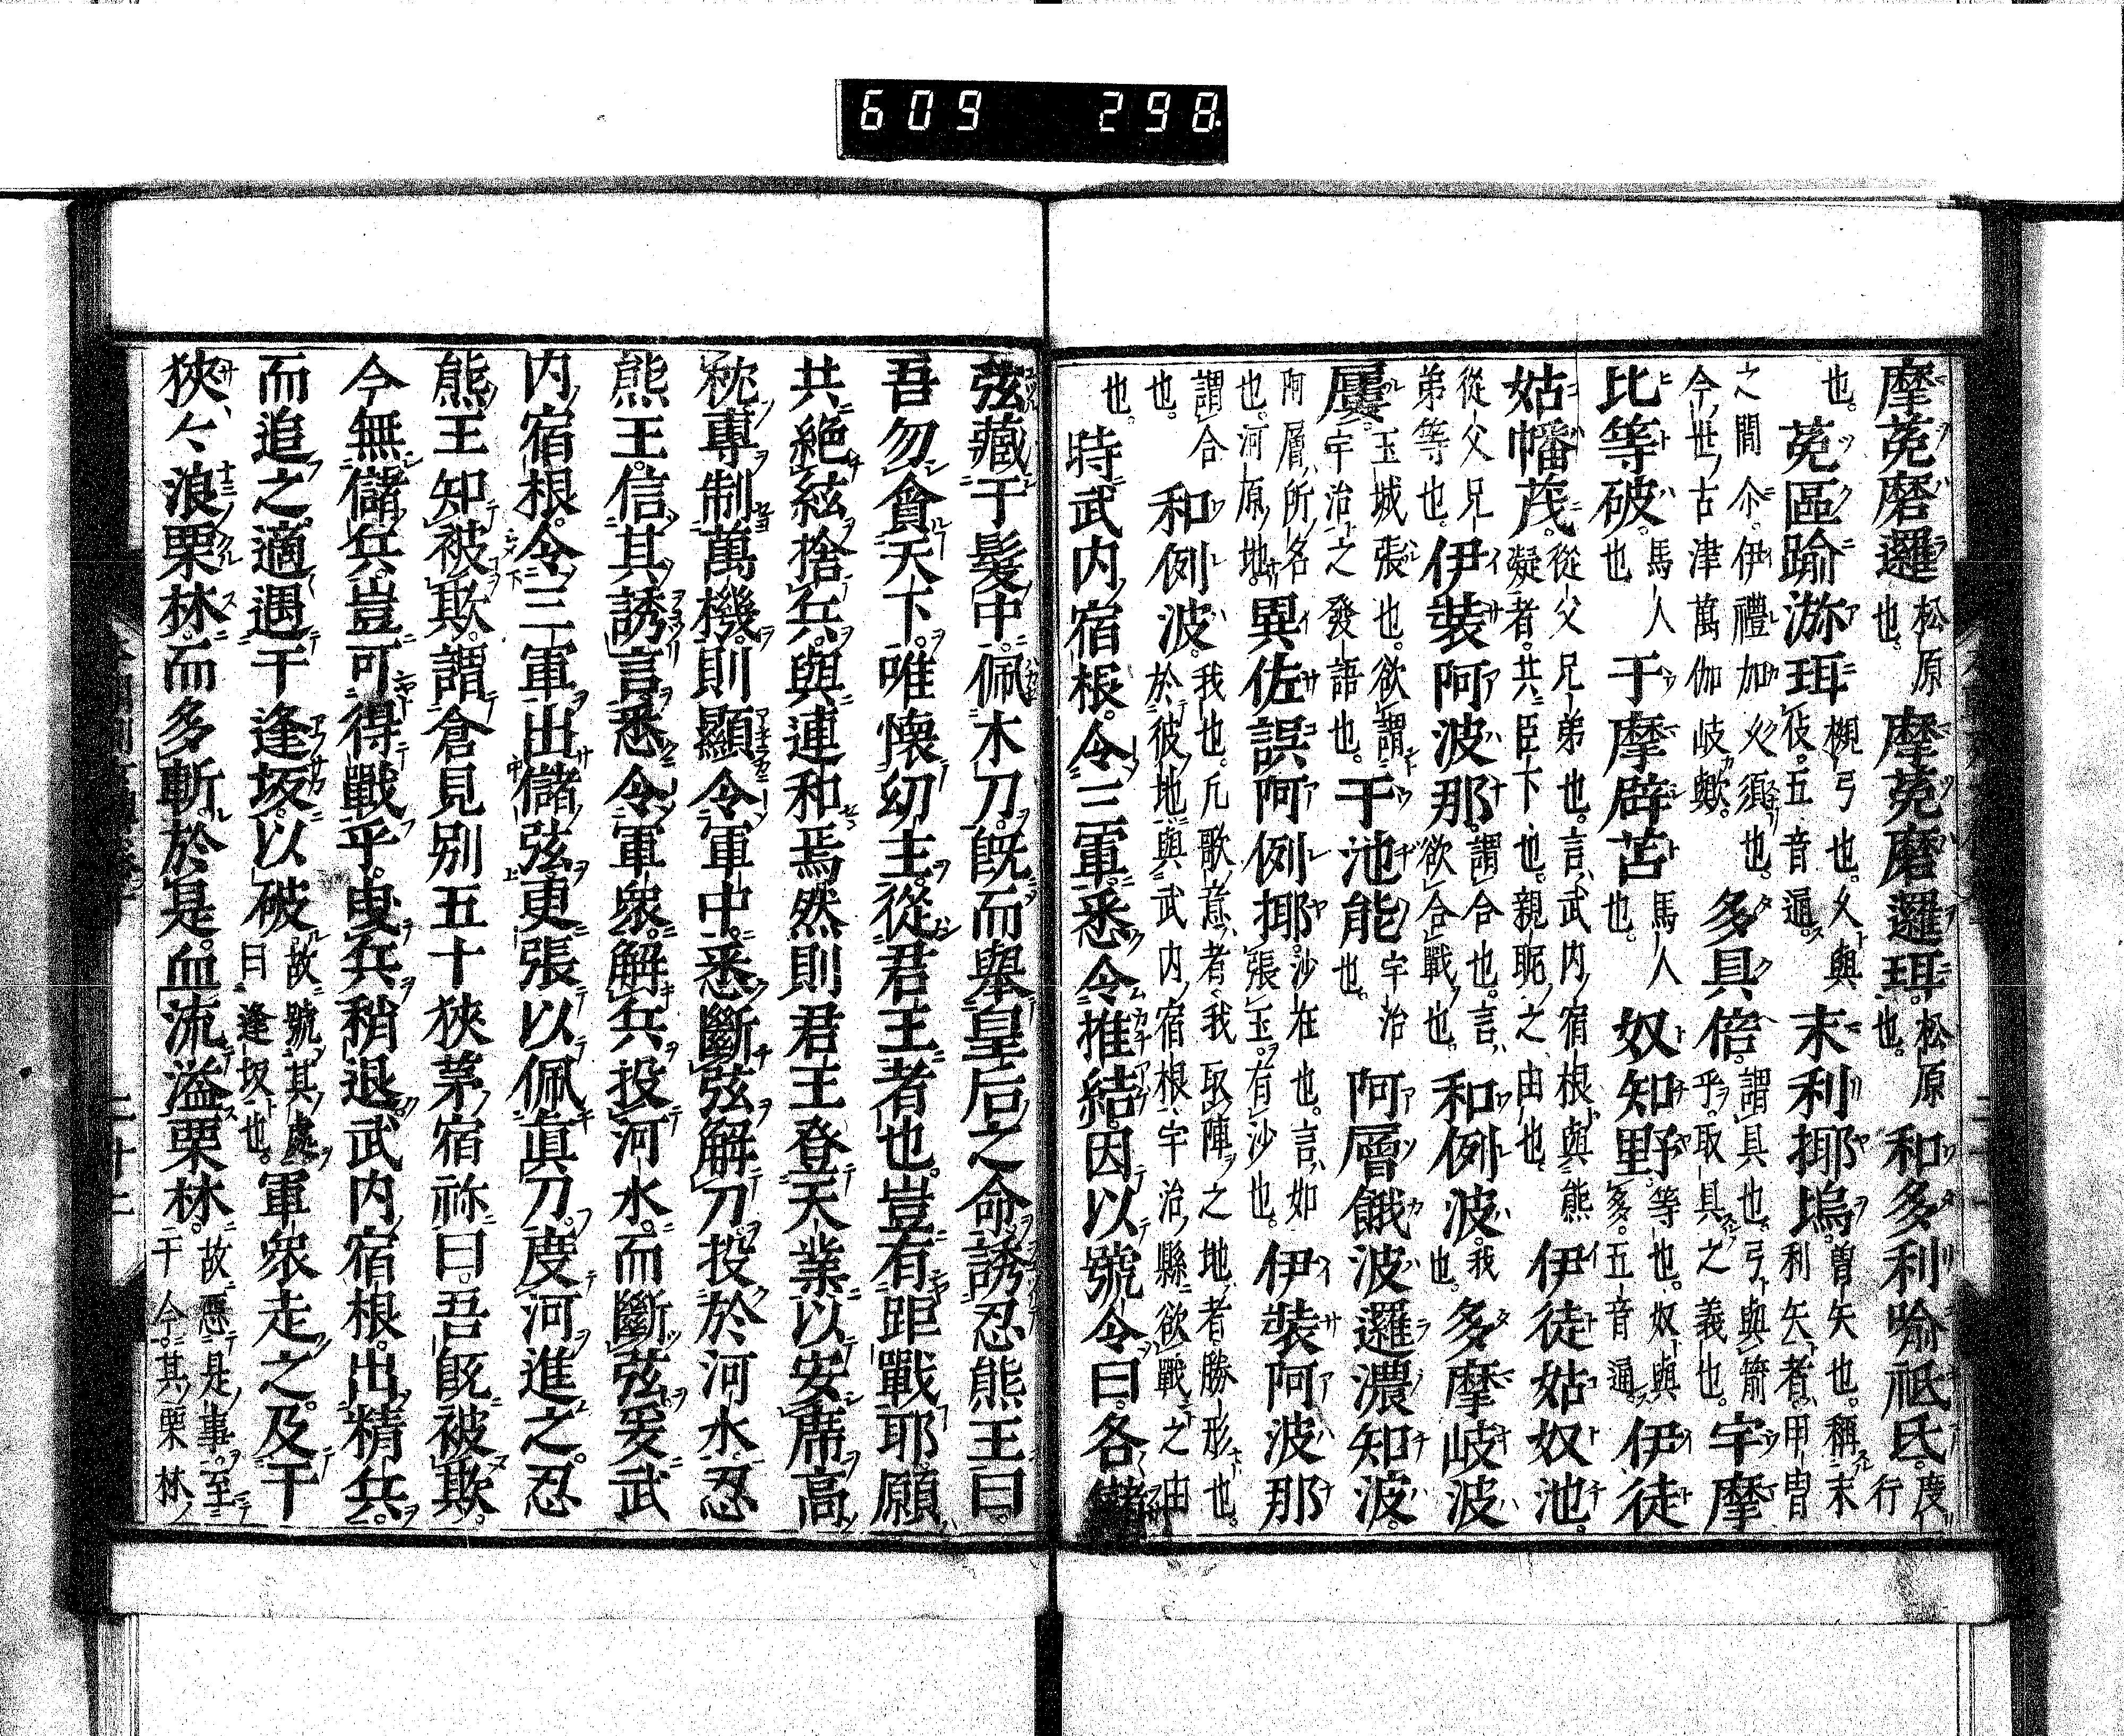 609 298
摩菟磨邏 松原也。 摩菟磨邏珥。 松原也。 和多利喩祗氐。 度行
也。 菟區踰瀰珥 槻弓也。久與伎。五音通。 末利椰塢 曽矢也。稱末利矢者。甲冑
之間介。伊禮加火須也。今世古津萬伽岐歟。 多具倍。 謂具也。弓與箭乎。取具之義也。 宇摩
比等破。 馬人也 于摩臂苫 馬人也。 奴知野 等也。奴與多。五音通 伊徒
姑幡茂。 從父兄弟也。言武内宿根與熊凝者。共臣下也。親昵之由也。 伊徒姑奴池。
從父兄弟等也。 伊裝阿波那。 謂合也。言欲合戰也。 和例波。 我也。 多摩岐波
屢。 玉城張也。欲謂宇治之發語也。 于池能 宇治也。 阿層餓波邏濃知波。
阿層所名也。河原地。 異佐誤阿例椰。 沙在也。言如張玉。有沙也。 伊裝阿波那
謂合也。 和例波。 我也。凡歌意者。我取陣之地者勝形也。於彼地與武内宿根宇治縣欲戰之由
也。 時武内宿根。令三軍。悉令推結。因以號令曰。各儲
弦藏于髮中。佩木刀。既而擧皇后之命。誘忍熊王曰。
吾勿貪天下。唯懷幼主。從君王者也。豈有距戰耶。願
共絶絃捨兵。與連和焉。然則君王登天業。以安席高
枕專制萬機。則顯令軍中。悉斷弦解刀。投於河水。忍
熊王信其誘言。悉令軍衆。解兵投河水。而斷弦。爰武
内宿根。令三軍。出儲弦更張。以佩眞刀。度河進之。忍
熊王知被欺。謂倉見別五十狹茅宿祢曰。吾既被欺。
今無儲兵。豈可得戰乎。曳兵稍退。武内宿根。出精兵。
而追之。適遇于逢坂。以破 故號其處曰逢坂也。 軍衆走之。及于
狹々浪栗林。而多斬。於是血流溢栗林。 故惡是事。至于今。其栗林